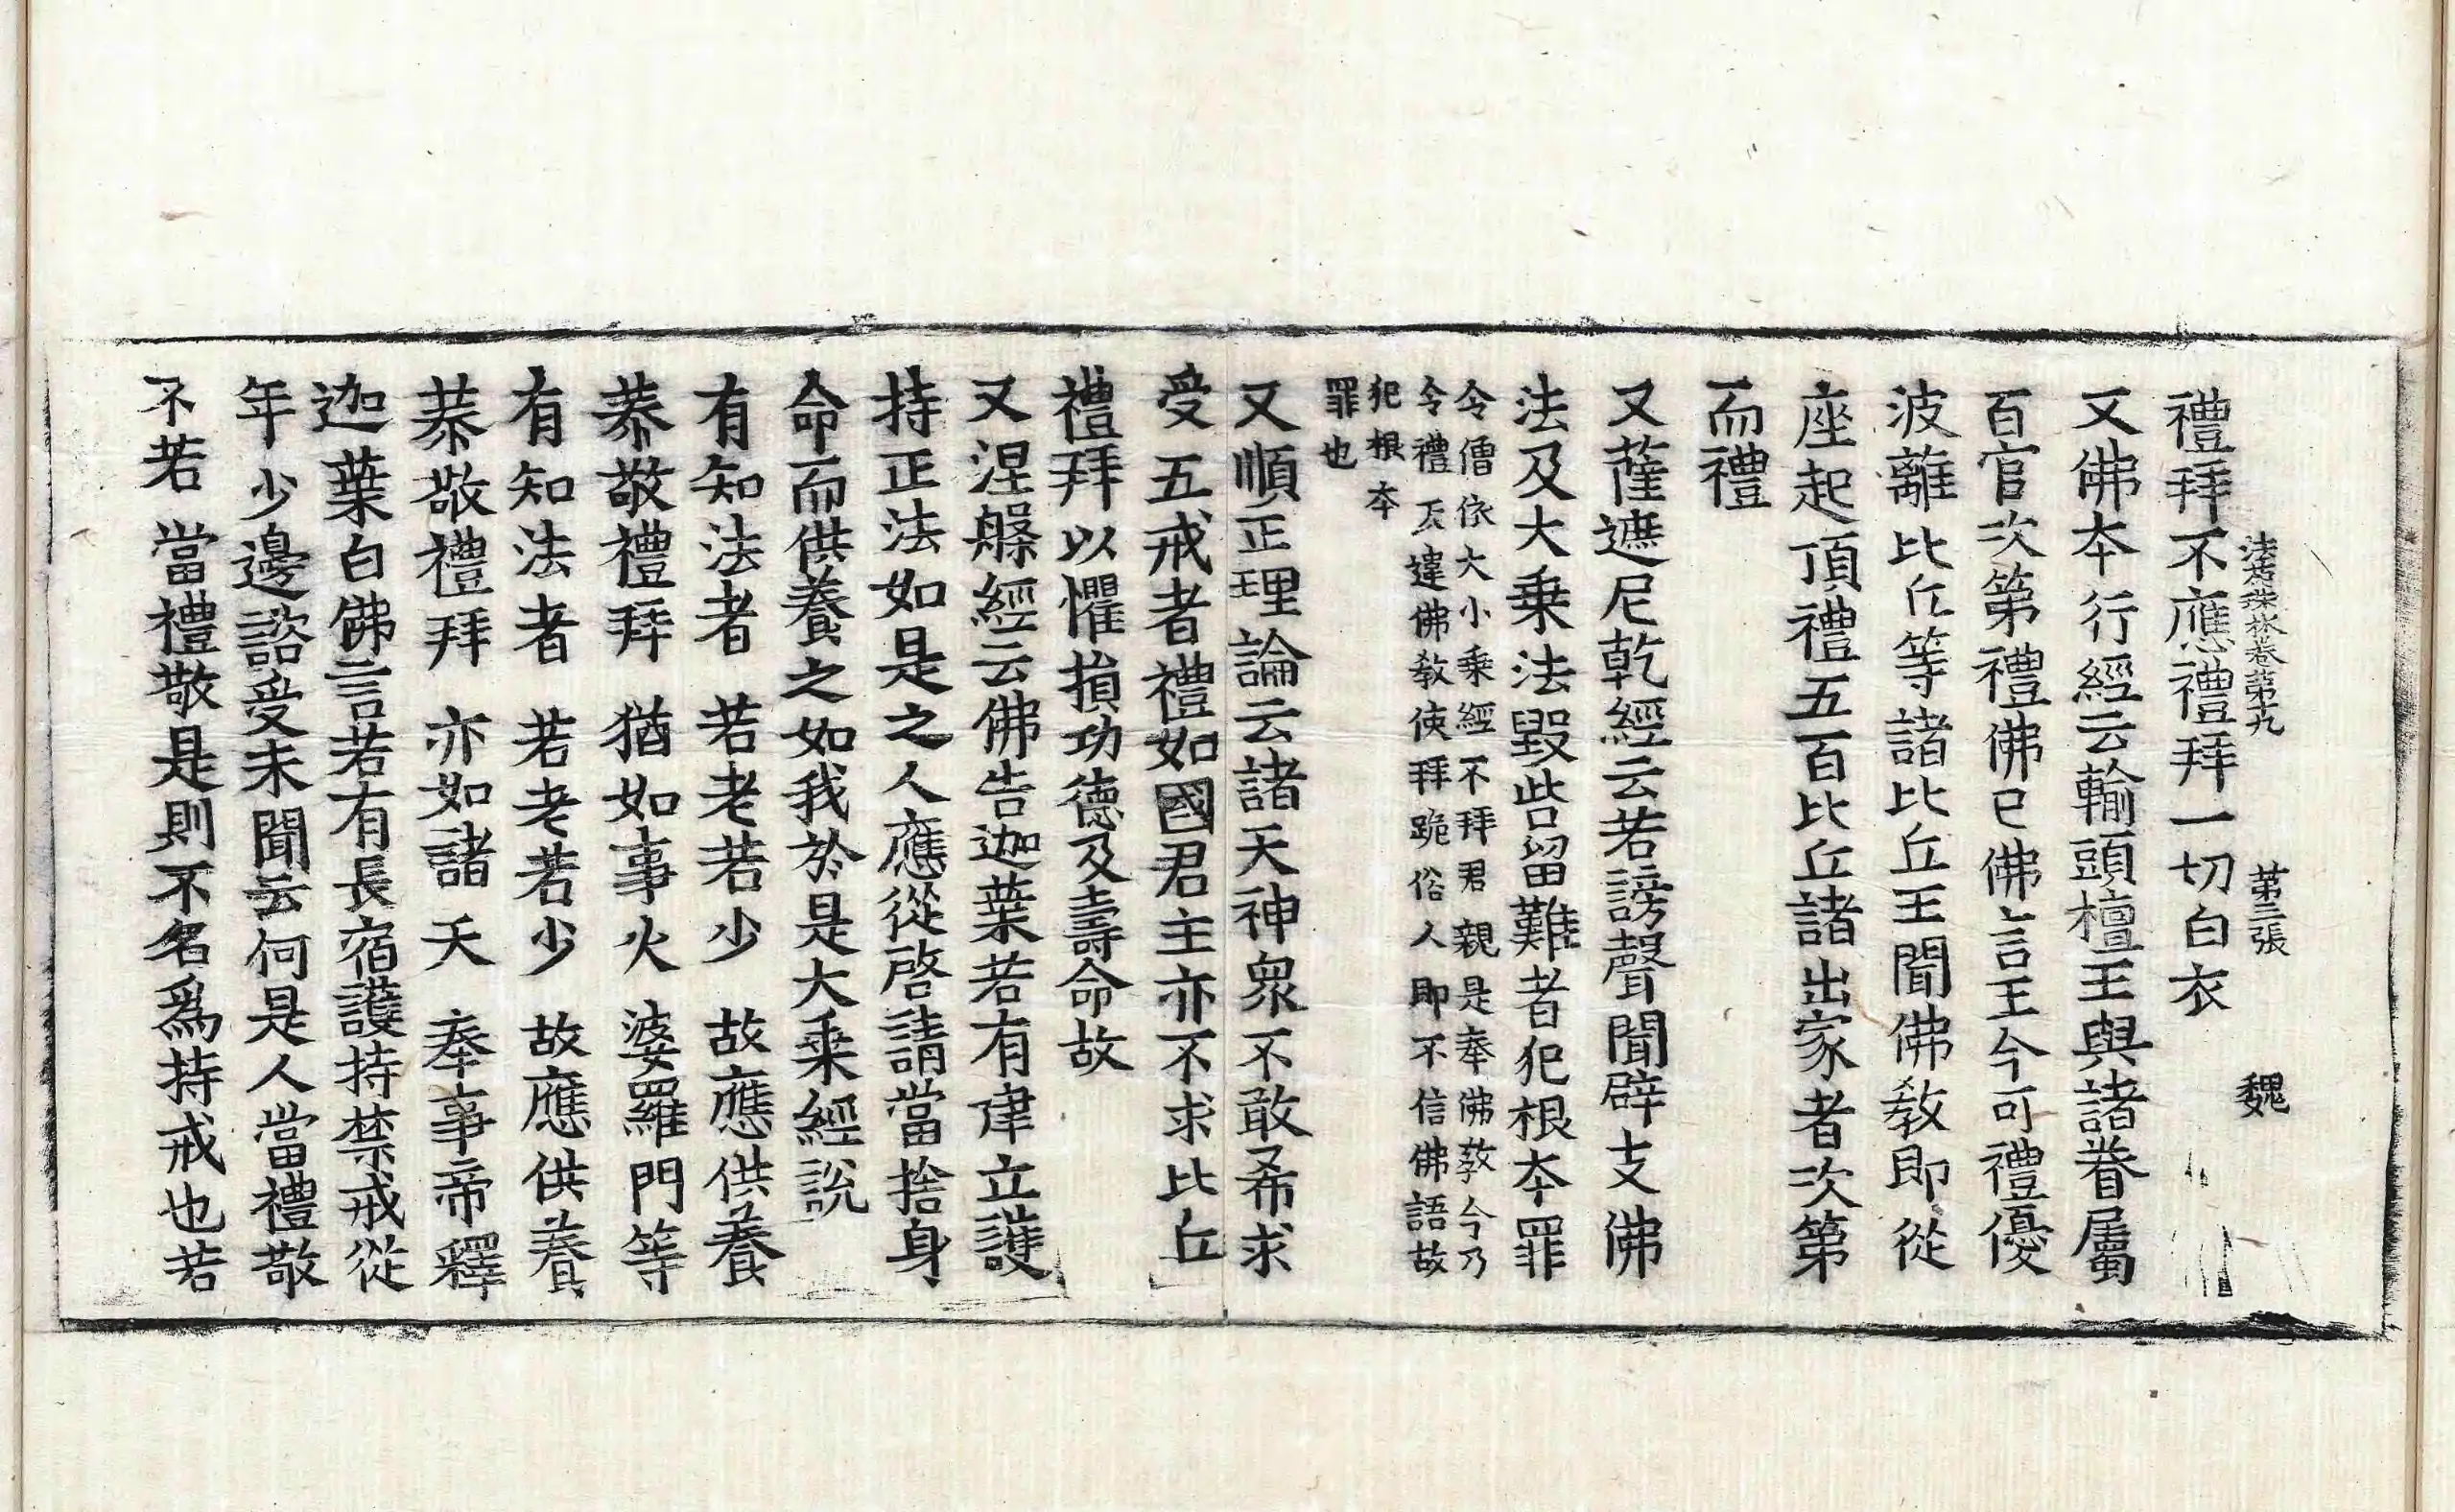 法苑珠林卷第九 第三張 魏
禮拜不應禮拜一切白衣
又佛本行經云輸頭檀王與諸眷屬
百官次第禮佛已佛言王今可禮優
波離比丘等諸比丘王聞佛教即從
座起頂禮五百比丘諸出家者次第
而禮
又薩遮尼乾經云若謗聲聞辟支佛
法及大乘法毀呰留難者犯根本罪
令僧依大小乘經不拜君親是奉佛教今乃
令禮反違佛教使拜跪俗人即不信佛語故
犯根本
罪也
又順正理論云諸天神衆不敢希求
受五戒者禮如國君主亦不求比丘
禮拜以懼損功德及壽命故
又涅槃經云佛告迦葉若有建立護
持正法如是之人應從啓請當捨身
命而供養之如我於是大乘經說
有知法者 若老若少 故應供養
恭敬禮拜 猶如事火 婆羅門等
有知法者 若老若少 故應供養
恭敬禮拜 亦如諸天 奉事帝釋
迦葉白佛言若有長宿護持禁戒從
年少邊諮受未聞云何是人當禮敬
不若當禮敬是則不名爲持戒也若